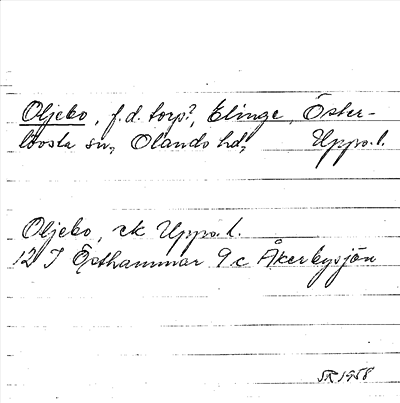 Oljebo, f.d. torp?, Elinge, Öster-
lövsta sn, Olands hd, Upps. l.
Oljebo, ek Upps. l.
12 I Östhammar 9 c Åkerbysjön
SR 1958